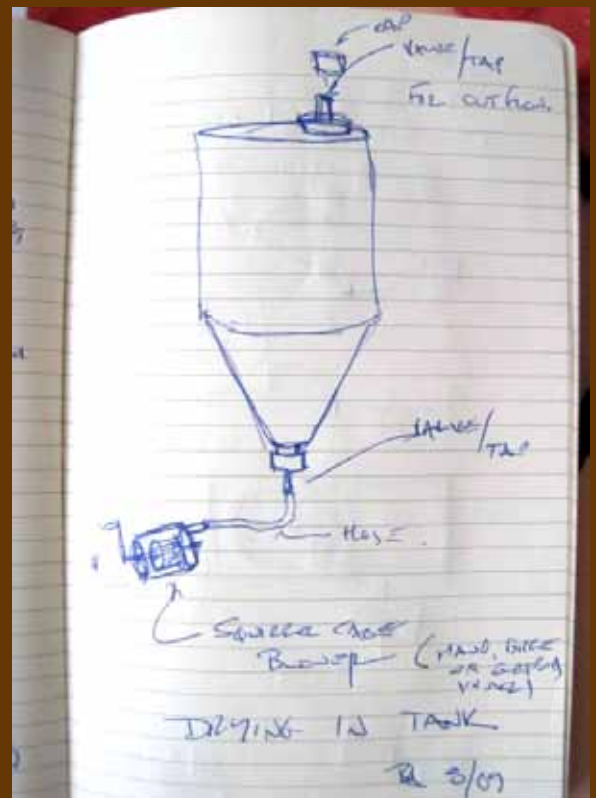 CAP
VALVE/TAP
FOR OUTFLOW
VALVE/
TAP
HOSE.
SQUIRREL CAGE
BLOWER (HAND, BIKE
OR
DRYING IN TANK